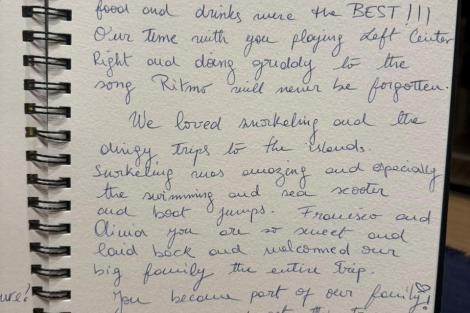 food and drinks were the BEST!!!
Our time with you playing Left Center
Right and doing griddy to the
song Ritmo will never be forgotten.
We loved snorkeling and the
dingy trips to the islands.
Snorkeling was amazing and especially
the swimming and sea scooter
and boat jumps. Francisco and
Olivia you are so sweet and
laid back and welcomed our
big family the entire trip.
You became part of our family!